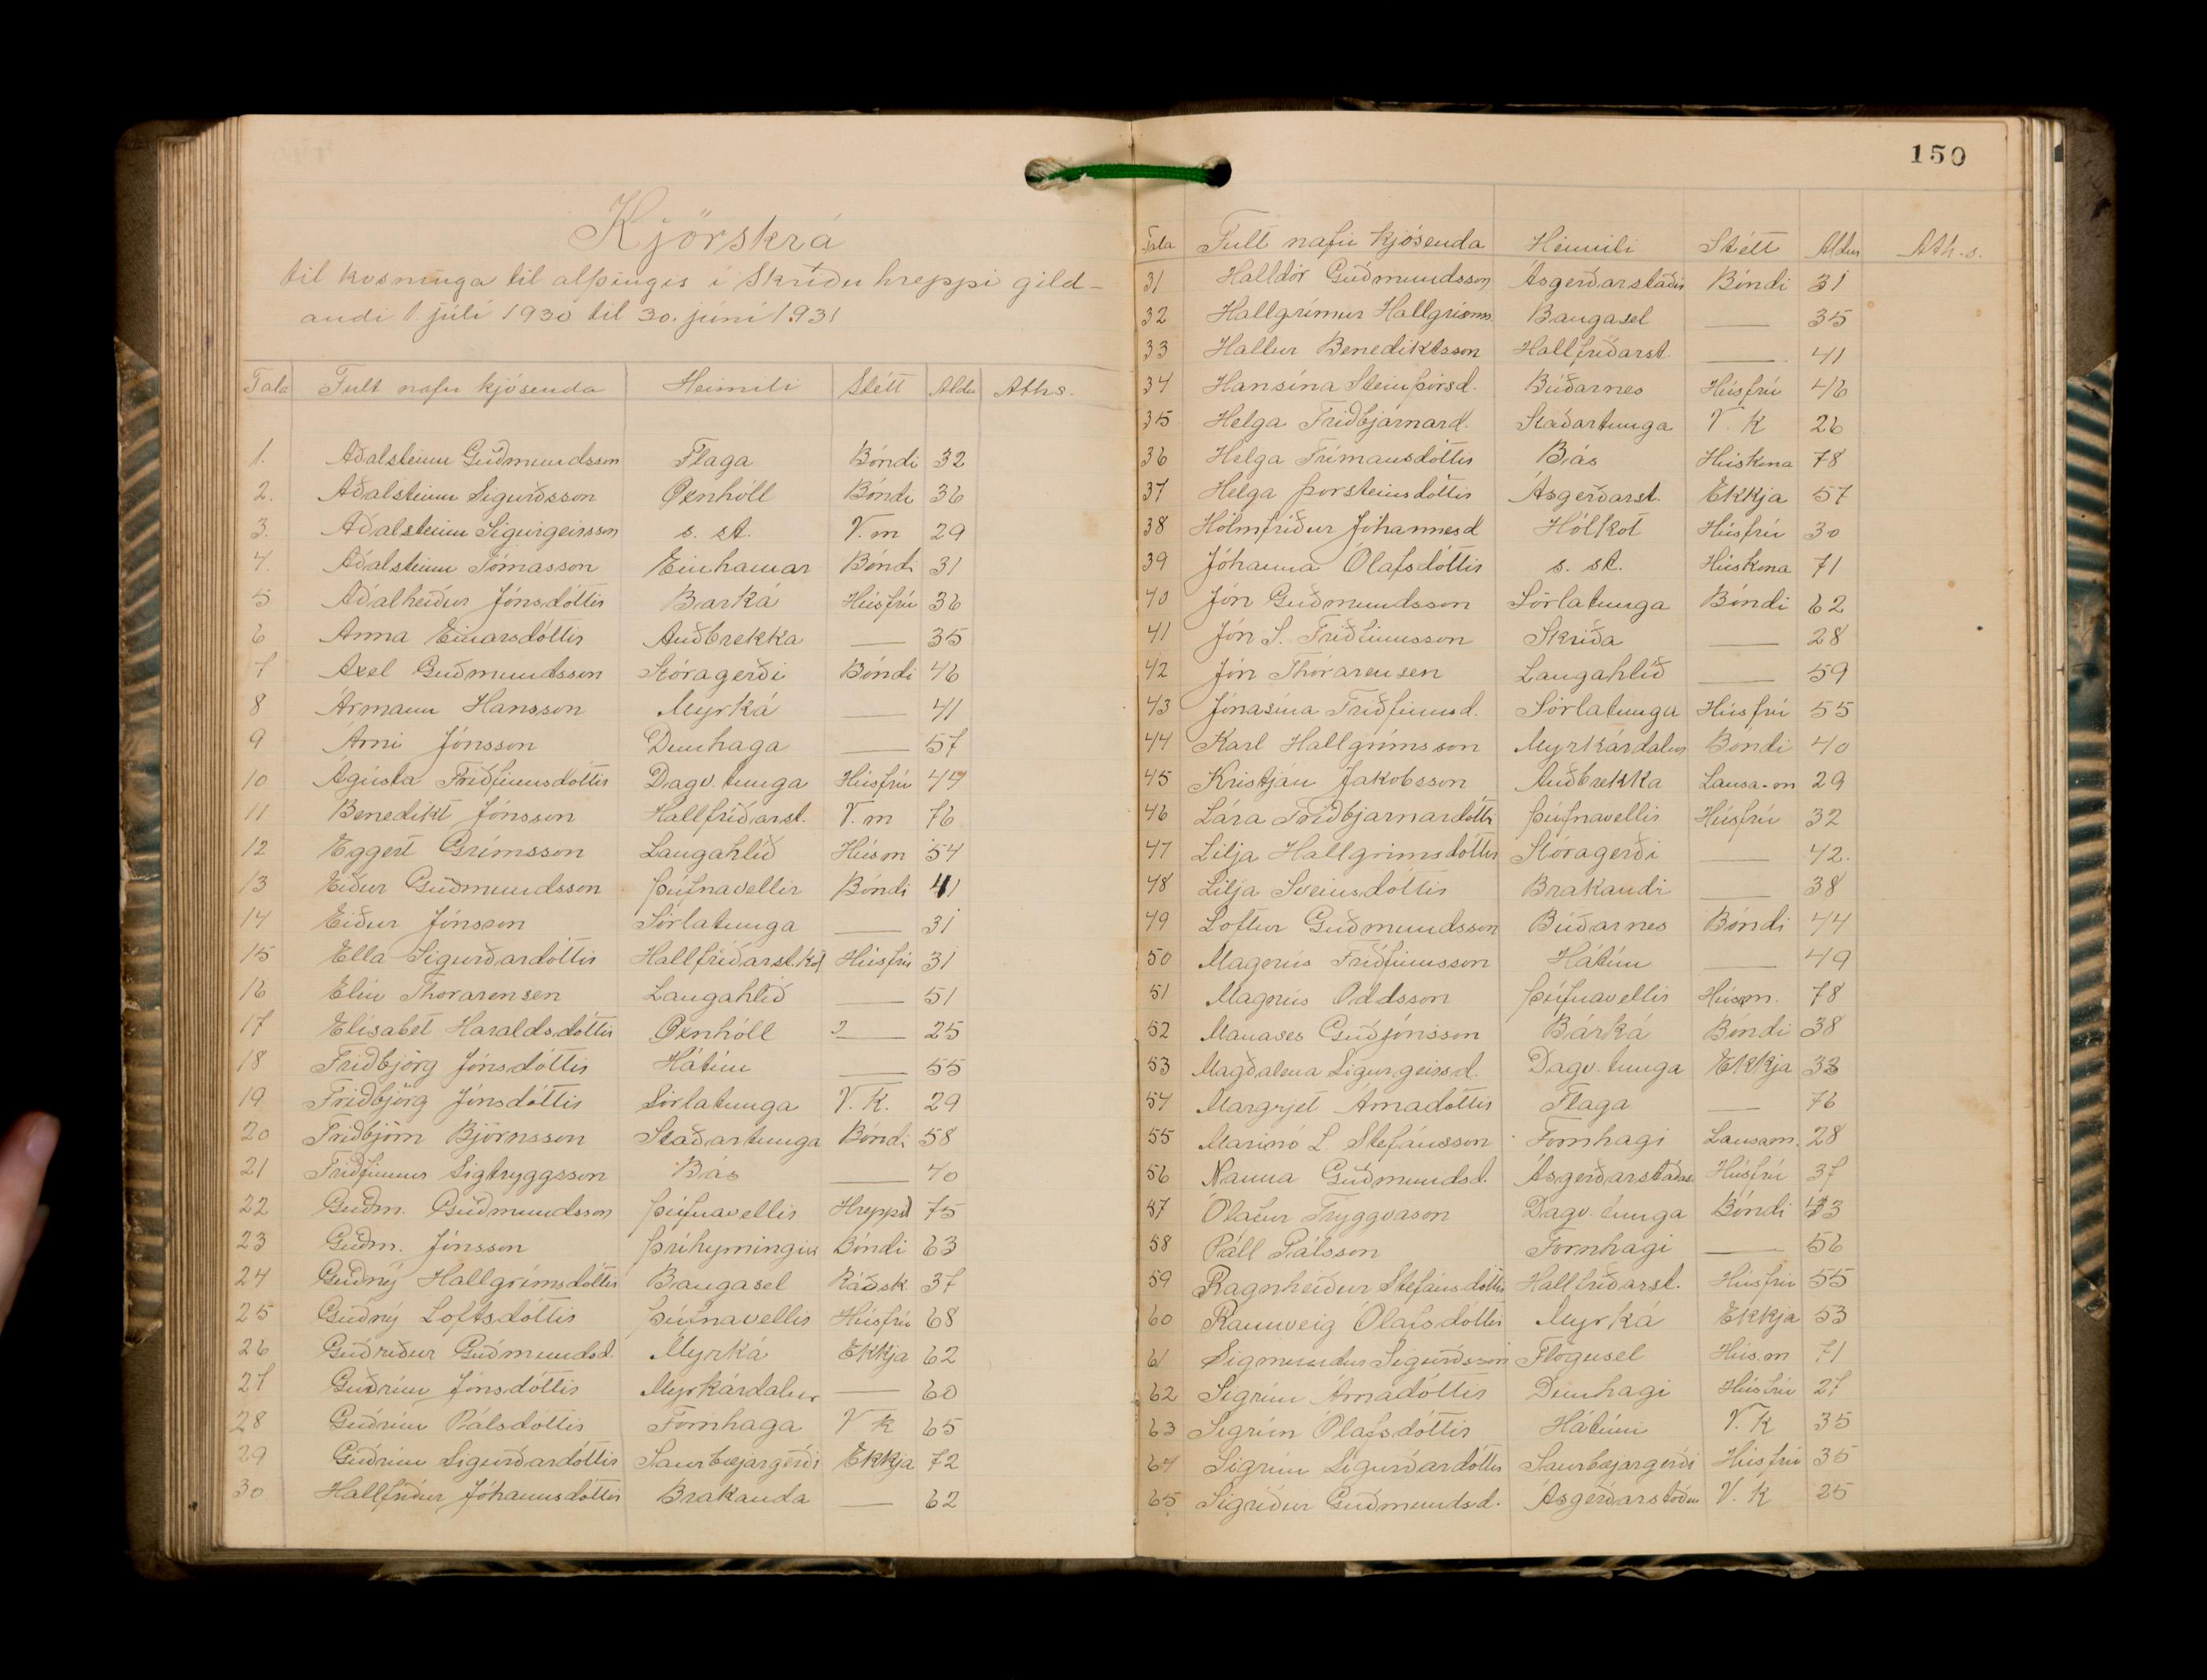 Kjörskrá
til kosninga til alþingis í Skriðuhreppi gild-
andi 1. júlí 1930 til 30. júní 1931
Tala Fult nafn kjósenda Heimili Stétt Aldur Aths.
1. Aðalsteinn Guðmundsson Flaga Bóndi 32
2. Aðalsteinn Sigurðsson Öxnhóll Bóndi 36
3. Aðalsteinn Sigurgeirsson s. st. V. m 29
4. Aðalsteinn Tómasson Einhamar Bóndi 31
5 Aðalheiður Jónsdóttir Barká Húsfrú 36
6 Anna Einarsdóttir Auðbrekka — 35
7 Axel Guðmundsson Stóragerði Bóndi 46
8 Ármann Hansson Myrká — 41
9 Árni Jónsson Dunhaga — 57
10 Ágústa Friðfinnsdóttir Dagv. tunga Húsfrú 44
11 Benedikt Jónsson Hallfríðarst. V. m 76
12 Eggert Grímsson Laugahlíð Húsm 54
13 Eiður Guðmundsson Þúfnavellir Bóndi 41
14 Eiður Jónsson Sörlatunga — 31
15 Ella Sigurðardóttir Hallfríðarst.kot Húsfrú 31
16 Elín Thorarensen Laugahlíð — 51
17 Elísabet Haraldsdóttir Öxnhóll — 25
18 Friðbjörg Jónsdóttir Hátún — 55
19 Friðbjörg Jónsdóttir Sörlatunga V. K. 29
20 Friðbjörn Björnsson Staðartunga Bóndi 58
21 Friðfinnur Sigtryggsson Bás — 40
22 Guðm. Guðmundsson Þúfnavellir Hreppst 75
23 Guðm. Jónsson Þríhyrningur Bóndi 63
24 Guðný Hallgrímsdóttir Baugasel Ráðsk. 37
25 Guðný Loftsdóttir Þúfnavellir Húsfrú 68
26 Guðríður Guðmundsd. Myrká Ekkja 62
27 Guðrún Jónsdóttir Myrkárdalur — 60
28 Guðrún Pálsdóttir Fornhaga V K 65
29 Guðrún Sigurðardóttir Saurbæjargerði Ekkja 72
30 Hallfríður Jóhannsdóttir Brakanda — 62
150
Tala Fult nafn kjósenda Heimili Stétt Aldur Ath.s.
31 Halldór Guðmundsson Ásgerðarstaðir Bóndi 31
32 Hallgrímur Hallgrímss. Baugasel — 35
33 Hallur Benediktsson Hallfríðarst. — 41
34 Hansína Steinþórsd. Búðarnes Húsfrú 46
35 Helga Friðbjarnard. Staðartunga V. K 26
36 Helga Frímansdóttir Bás Húskona 78
37 Helga Þorsteinsdóttir Ásgerðarst. Ekkja 57
38 Hólmfríður Jóhannesd Hólkot Húsfrú 30
39 Jóhanna Ólafsdóttir s. st. Húskona 71
40 Jón Guðmundsson Sörlatunga Bóndi 62
41 Jón S. Friðfinnsson Skriða — 28
42 Jón Thórarensen Laugahlíð — 59
43 Jónasína Friðfinnsd. Sörlatunga Húsfrú 55
44 Karl Hallgrímsson Myrkárdalur Bóndi 40
45 Kristján Jakobsson Auðbrekka Lausa-m 29
46 Lára Friðbjarnardóttir Þúfnavellir Húsfrú 32
47 Lilja Hallgrímsdóttir Stóragerði — 42.
48 Lilja Sveinsdóttir Brakandi — 38
49 Loftur Guðmundsson Búðarnes Bóndi 44
50 Magnús Friðfinnsson Hátún — 49
51 Magnús Oddsson Þúfnavellir Húsm. 78
52 Manases Guðjónsson Bárká Bóndi 38
53 Magðalena Sigurgeirsd. Dagv. tunga Ekkja 33
54 Margrjet Árnadóttir Flaga — 76
55 Marinó L. Stefánsson Fornhagi Lausam. 28
56 Nanna Guðmundsd. Ásgerðarstaðir Húsfrú 37
57 Ólafur Tryggvason Dagv. tunga Bóndi 43
58 Páll Pálsson Fornhagi — 56
59 Ragnheiður Stefánsdóttir Hallfríðarst. Húsfrú 55
60 Rannveig Ólafsdóttir Myrká Ekkja 53
61 Sigmundur Sigurðsson Flögusel Hús.m 71
62 Sigrún Árnadóttir Dunhagi Húsfrú 27
63 Sigrún Ólafsdóttir Hátúni V. K 35
64 Sigrún Sigurðardóttir Saurbæjargerði Húsfrú 35
65 Sigríður Guðmundsd. Ásgerðarstöðum V. K 25